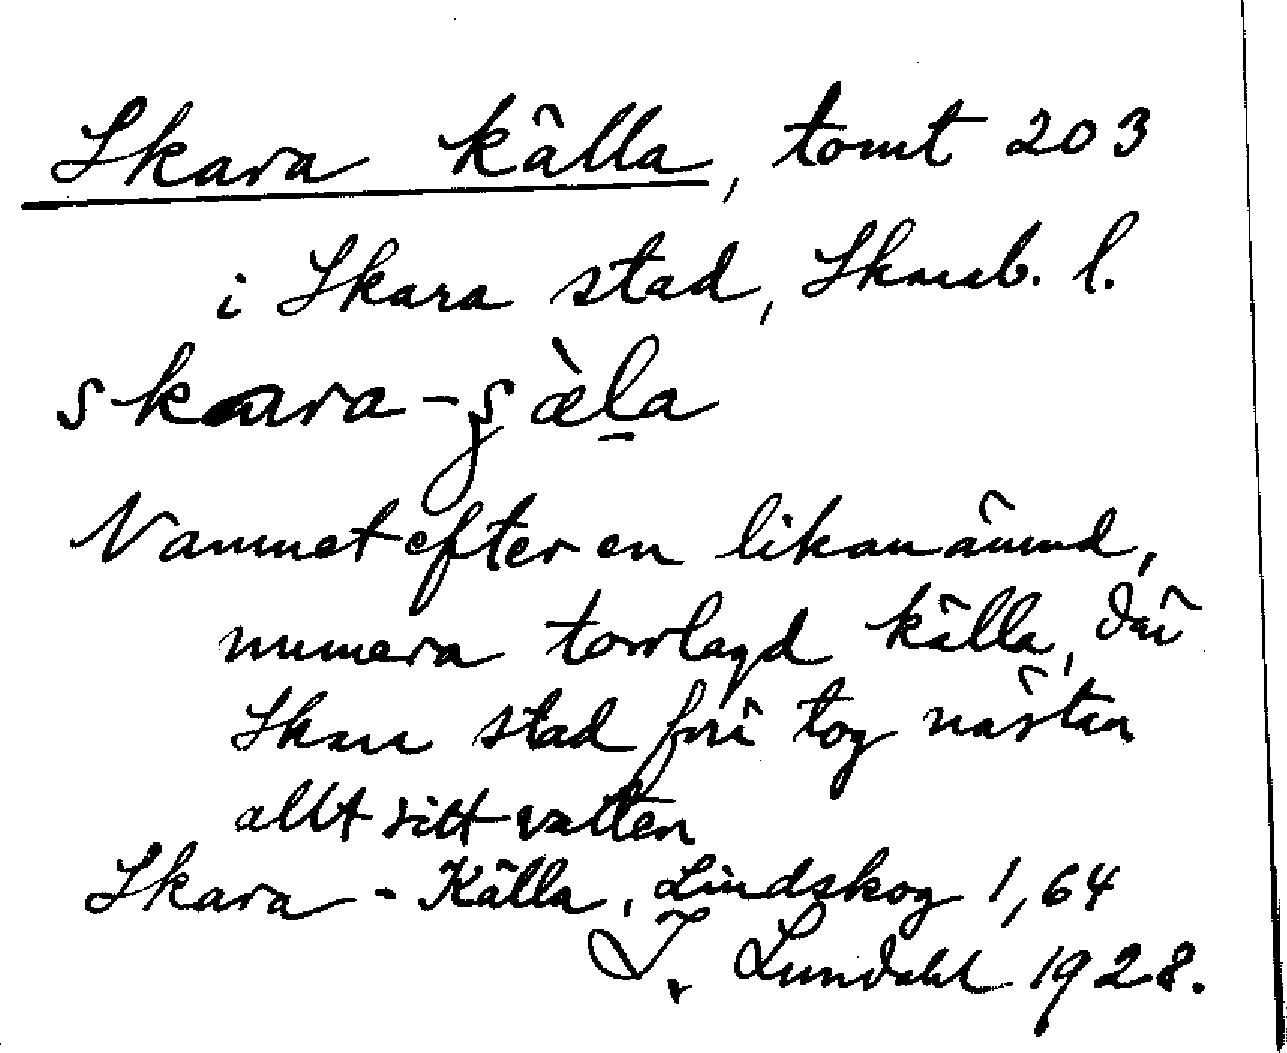 Skara källa, tomt 203
i Skara stad, Skarab. l.
skara-ʂæ̀l̠a
Namnet efter en likanämnd,
numera torrlagd källa, där
Skara stad förr tog nästan
allt sitt vatten
Skara-Källa, Lindskog 1,64
I. Lundahl 1928.